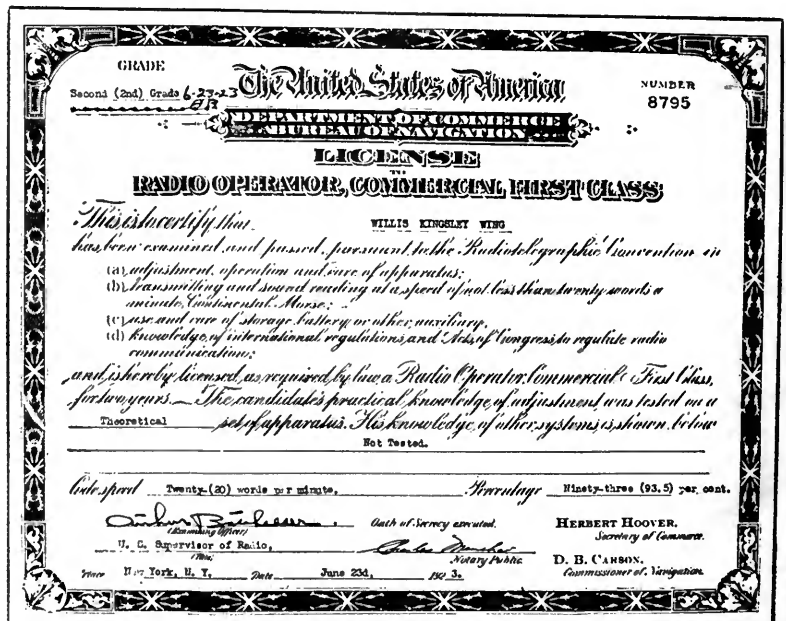 GRADE
Second (2nd) Grade 6-23-23
The United States of America
NUMBER
8795
DEPARTMENT OF COMMERCE
BUREAU OF NAVIGATION
LICENSE
RADIO OPERATOR, COMMERCIAL FIRST CLASS
This is to certify that WILLIS KINGSLEY WING
has been examined and passed, pursuant to the Radiotelegraphic Convention in
(a) adjustment, operation and care of apparatus;
(b) transmitting and sound reading at a speed of not less than twenty words a
minute, Continental Morse;
(c) use and care of storage battery or other auxiliary,
(d) knowledge of international regulations and Acts of Congress to regulate radio
communication;
and is hereby licensed, as required by law, a Radio Operator, Commercial First Class,
for two years. The candidate's practical knowledge of adjustment was tested on a
Theoretical set of apparatus. His knowledge of other systems is shown below
Not Tested.
Code speed Twenty (20) words per minute. Percentage Ninety-three (93.5) per cent.
(Examining Officer) Oath of Secrecy executed. HERBERT HOOVER,
Secretary of Commerce.
U. S. Supervisor of Radio,
(Title) Notary Public D. B. CARSON,
Place New York, N. Y. Date June 23d, 192 3. Commissioner of Navigation.